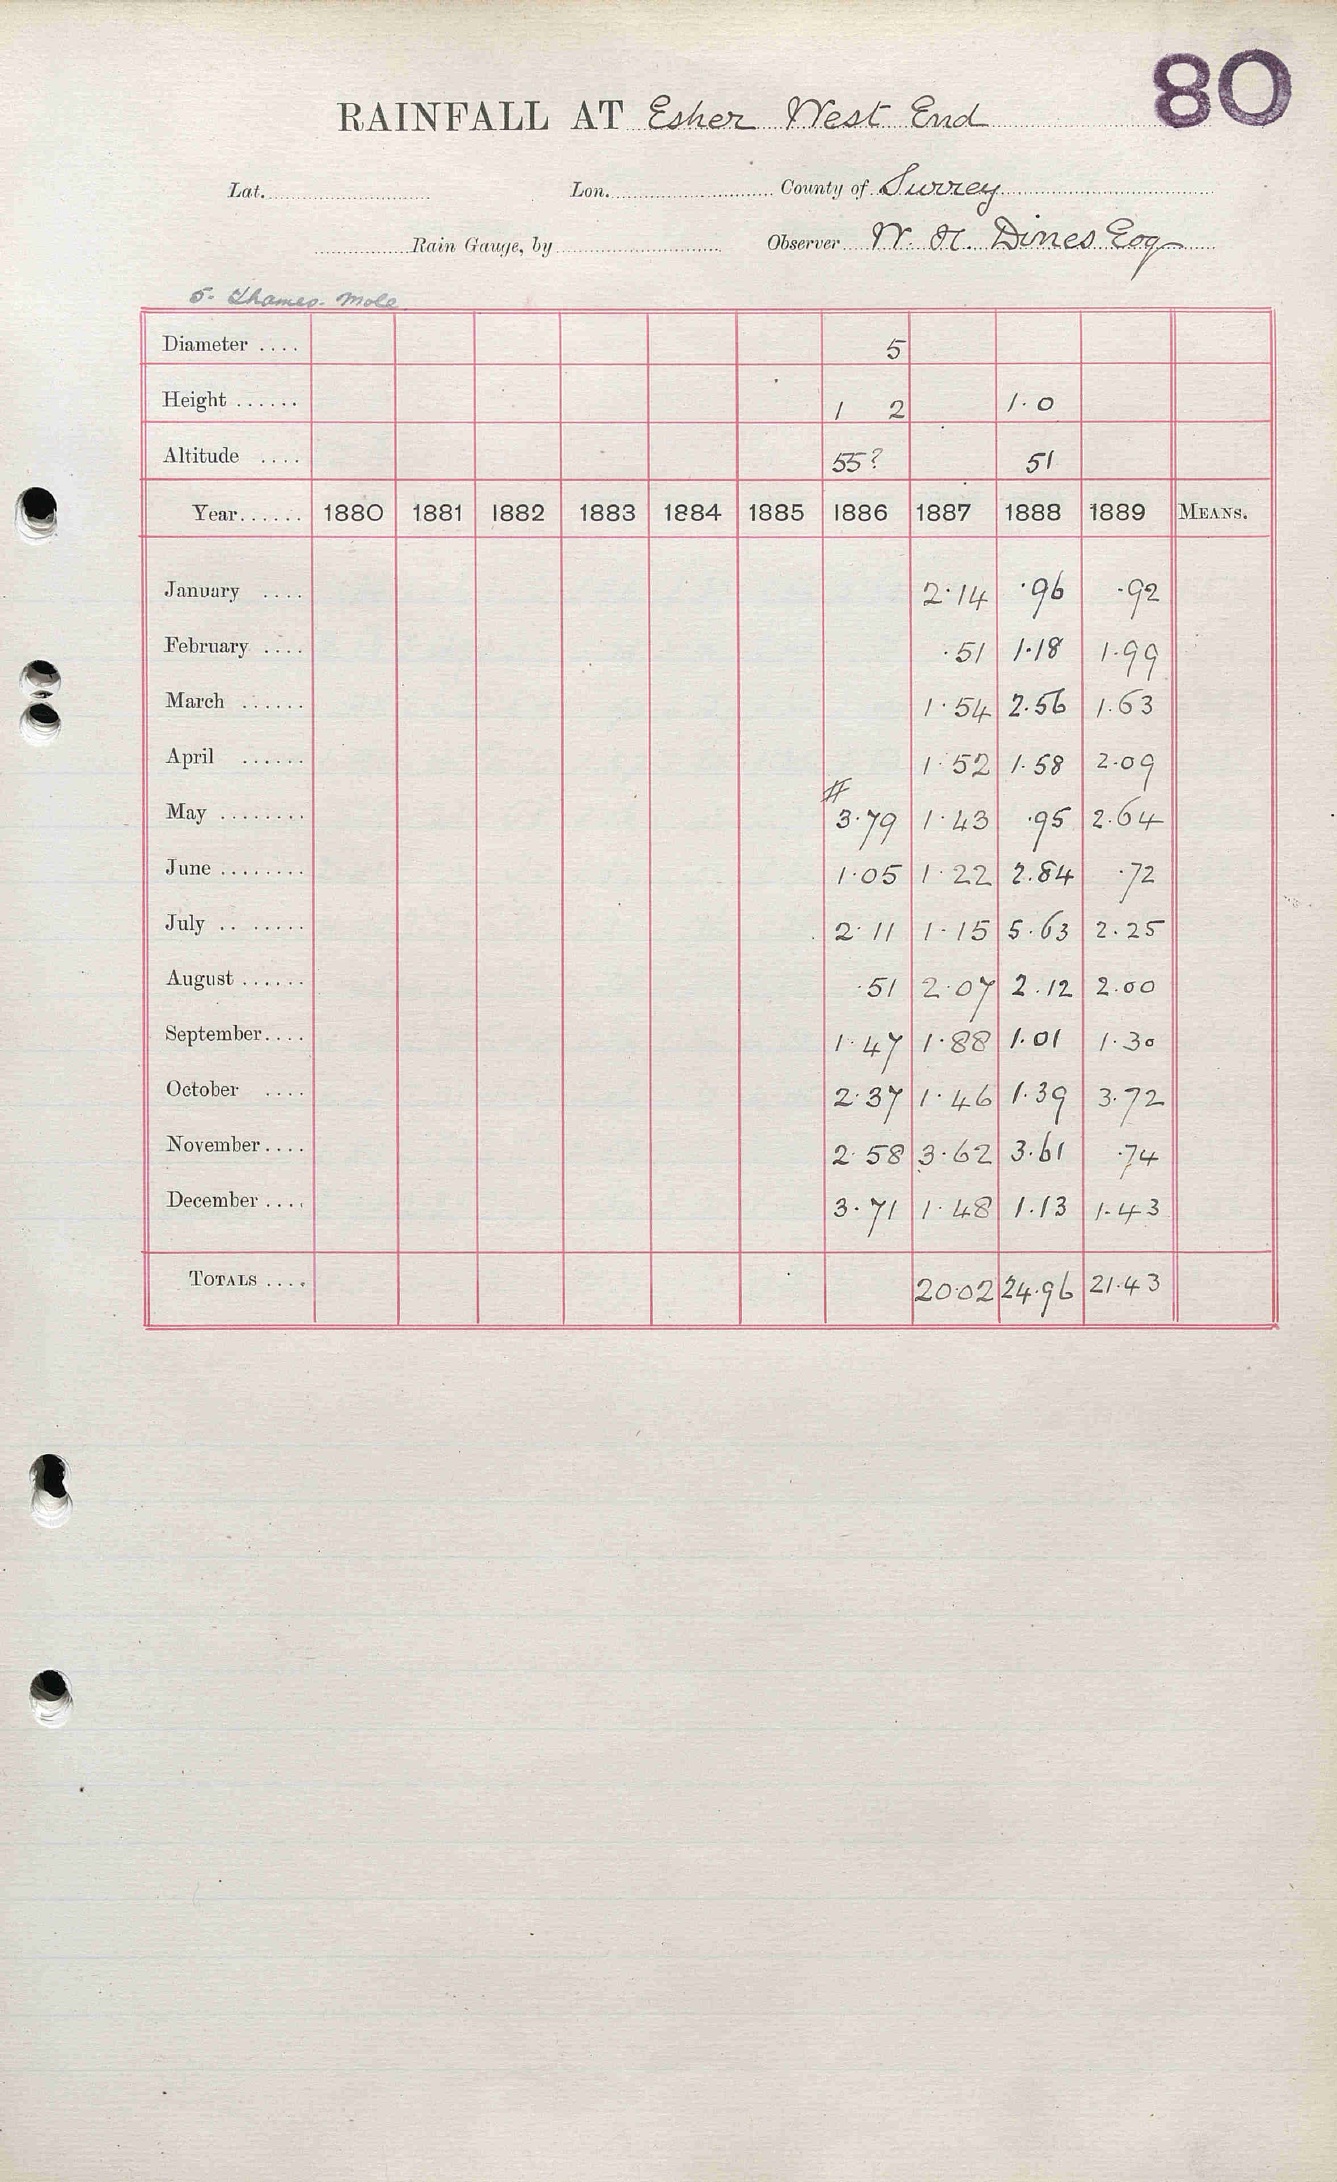 80
RAINFALL AT Esher West End
Lat. Lon. County of Surrey
Rain Gauge, by Observer W. H. Dines Esq
5. Thames. Mole
Diameter .... 5
Height ...... 1 2 1.0
Altitude .... 55? 51
Year...... 1880 1881 1882 1883 1884 1885 1886 1887 1888 1889 MEANS.
January .... 2.14 .96 .92
February .... .51 1.18 1.99
March ...... 1.54 2.56 1.63
April ...... 1.52 1.58 2.09
#
May ........ 3.79 1.43 .95 2.64
June ........ 1.05 1.22 2.84 .72
July .. ...... 2.11 1.15 5.63 2.25
August ...... .51 2.07 2.12 2.00
September.... 1.47 1.88 1.01 1.30
October .... 2.37 1.46 1.39 3.72
November.... 2.58 3.62 3.61 .74
December .... 3.71 1.48 1.13 1.43
TOTALS .... 20.02 24.96 21.43